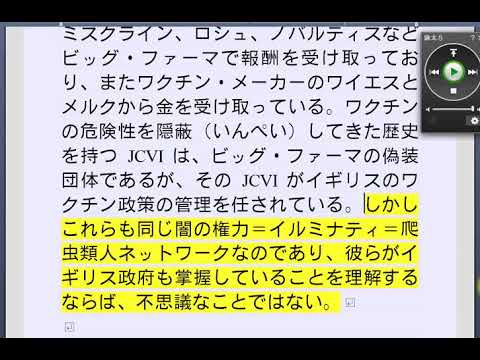 ミスクライン、ロシュ、ノバルティスなど
ビッグ・ファーマで報酬を受け取ってお
り、またワクチン・メーカーのワイエスと
メルクから金を受け取っている。ワクチン
の危険性を隠蔽（いんぺい）してきた歴史
を持つ JCVI は、ビッグ・ファーマの偽装
団体であるが、その JCVI がイギリスのワ
クチン政策の管理を任されている。しかし
これらも同じ闇の権力＝イルミナティ＝爬
虫類人ネットワークなのであり、彼らがイ
ギリス政府も掌握していることを理解する
ならば、不思議なことではない。